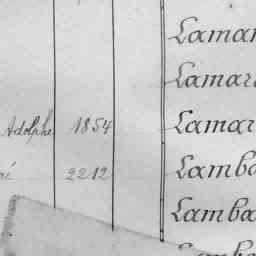 Laman
Lamar
Adolphe 1854 Lamar
ré 2212 Lamba
Lamba
Lamba